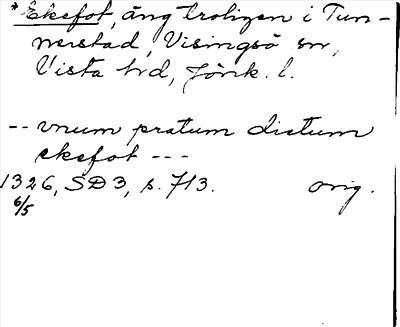 *Ekefot, äng troligen i Tun-
nerstad, Visingsö sn,
Vista hrd, Jönk. l.
-- vnum pratum dictum
ekefot ---
1326, SD3, s. 713. orig.
6/5